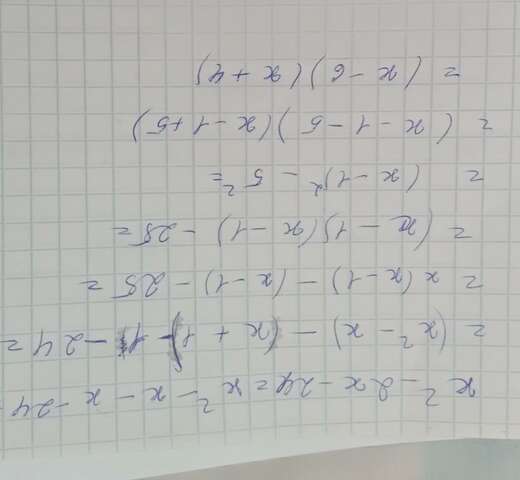 x² - 2x - 24 = x² - x - x - 24
= (x² - x) - (x + 1) - 1 - 24 =
= x (x - 1) - (x - 1) - 25 =
= (x - 1) (x - 1) - 25 =
= (x - 1)² - 5² =
= (x - 1 - 5) (x - 1 + 5)
= (x - 6) (x + 4)